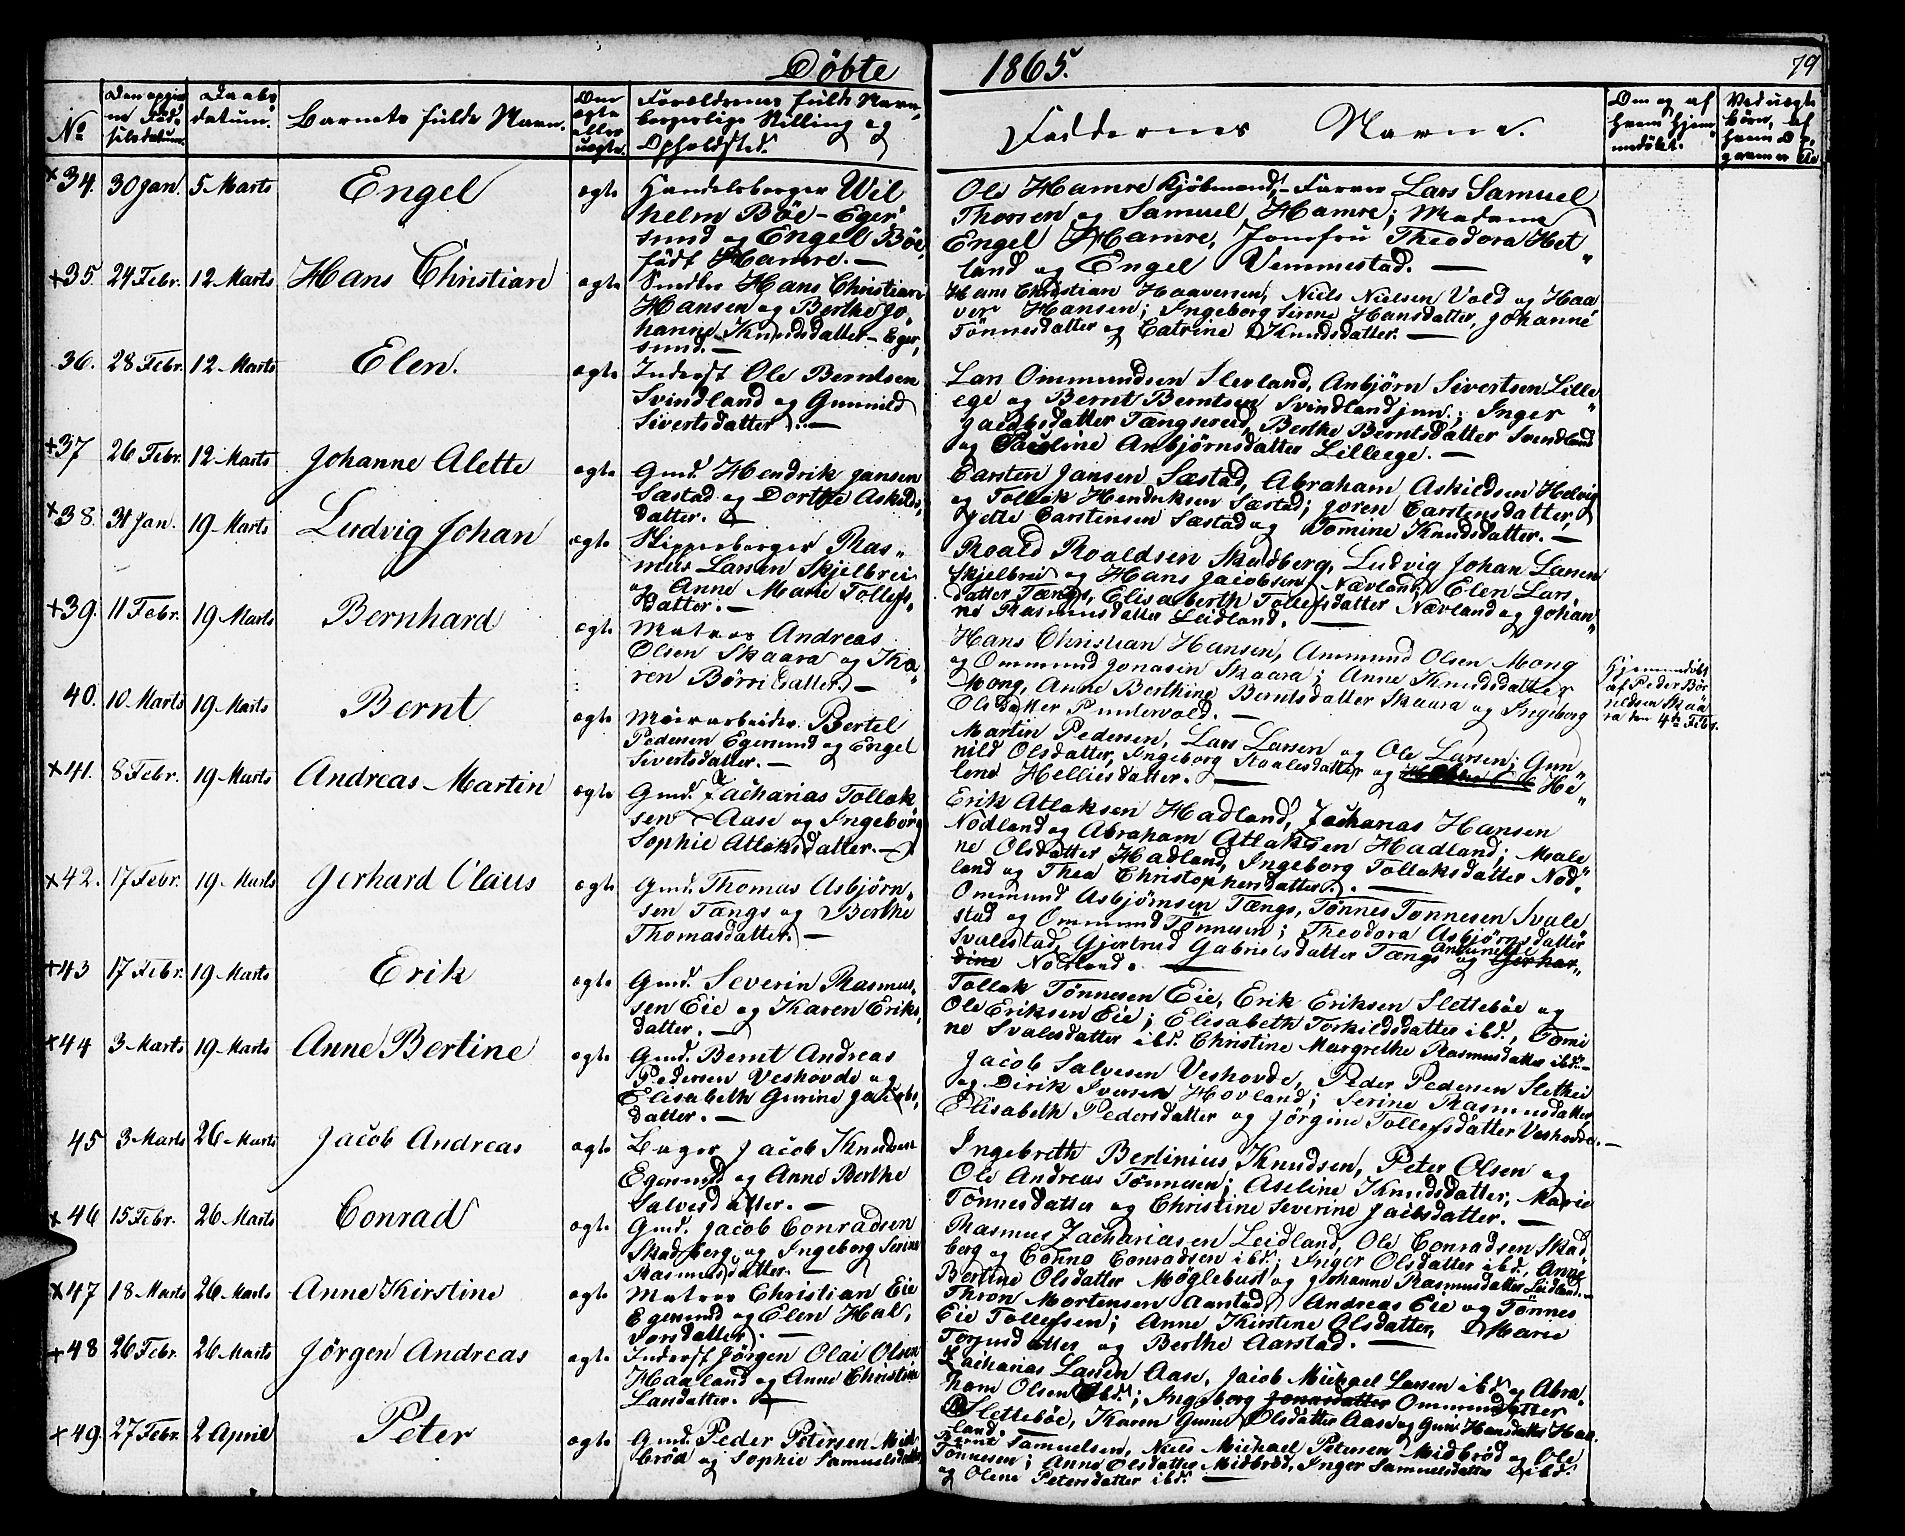 Döbte 1865. 79
No
Den opgivne Födselsdatum.
Daabsdatum.
Barnets fulde Navn.
Om ægte eller uægte.
Forældrenes fulde Navn, borgerlige Stilling og Opholdsted.
Faddernes Navne.
Om og af hvem hjemmedöbt.
Ved uægte börn, af hvem
+34. 30 Jan. 5 Marts Engel ægte
Handelsborger Wil„
helm Böe - Eger„
sund og Engel Böe,
födt Hamre. —
Ole Hamre Kjöbmand, Farver Lars Samuel
Thorsen og Samuel Hamre; Madame
Engel Hamre, Jomfru Theodora Het„
land og Engel Vemmestad. —
+35. 24 Febr. 12 Marts Hans Christian ægte
Snedker Hans Christian
Hansen og Berthe Jo„
hanne Knudsdatter - Eger„
sund. —
Hans Christian Haaversen, Niels Nielsen Vold og Haa„
ver Hansen; Ingeborg Serene Hansdatter, Johanne
Tönnesdatter og Catrine Knudsdatter. —
36. 28 Febr. 12 Marts Elen. ægte
Inderst Ole Berntsen
Svindland og Gunnild
Sivertsdatter. —
Lars Ommundsen Slevland, Anbjörn Sivertsen Lille„
ege og Bernt Berntsen Svindland jun.; Inger
Jacobsdatter Tængsereid, Berthe Berntsdatter Svindland
og Pauline Anbjörnsdatter Lilleege. —
+37 26 Febr. 12 Marts Johanne Alette ægte
Gmd. Hendrik Jansen
Sæstad og Dorthe Askilds„
datter. —
Carsten Jansen Sæstad, Abraham Askildsen Helvig
og Tollak Hendriksen Sæstad; Joren Carstensdatter,
Jette Carstensen Sæstad og Tomine Knudsdatter. —
+38. 31 Jan. 19 Marts Ludvig Johan ægte
Skipperborger Ras„
mus Larsen Skjelbrei
og Anne Marie Tollefs„
datter. —
Roald Roaldsen Skadberg, Ludvig Johan Larsen
Skjelbrei og Hans Jacobsen Nævland; Elen Lars„
datter Tængs, Elisaberth Tollefsdatter Nævland og Johan„
ne Rasmusdatter Leidland. —
+39. 11 Febr. 19 Marts Bernhard ægte
Matros Andreas
Olsen Skaara og Ka„
ren Börrisdatter —
Hans Christian Hansen, Ammund Olsen Mong
og Ommund Jonasen Skaara; Anne Knudsdatter
Mong, Anne Berthine Berntsdatter Skaara og Ingeborg
Olsdatter Pundervold. —
Hjemmedöbt
af Peder Bör„
rildsen Skaa„
ra den 4de Febr.
40. 10 Marts 19 Marts Bernt ægte
Bertel
Pedersen Egersund og Engel
Sivertsdatter. —
Martin Pedersen, Lars Larsen og Ole Larsen; Gun„
nild Olsdatter, Ingeborg Staalesdatter og He„
lene Helliesdatter. —
+41. 8 Febr. 19 Marts Andreas Martin ægte
Gmd. Zacharias Tollak„
sen Aase og Ingeborg
Sophie Atlaksdatter. —
Erik Atlaksen Hadland, Zacharias Hansen
Nodland og Abraham Atlaksen Hadland; Male„
ne Olsdatter Hadland, Ingeborg Tollaksdatter Nod„
land og Thea Christophersdatter. —
+42. 17 Febr. 19 Marts Gerhard Claus ægte
Gmd. Thomas Asbjörn„
sen Tængs og Berthe
Thomasdatter. —
Ommund Asbjörnsen Tængs, Tönnes Tönnesen Svale„
stad og Ommund Tönnesen; Theodora Asbjörnsdatter
Svalestad, Gjertrud Gabrielsdatter Tængs og Gerhar„
dine Nodland. —
+43 17 Febr. 19 Marts Erik ægte
Gmd. Severin Rasmus„
sen Eie og Karen Eriks„
datter. —
Tollak Tönnesen Eie, Erik Eriksen Sletteböe og
Ole Eriksen Eie; Elisabeth Torkildsdatter ibd., Tomi„
ne Svalesdatter ibd. Christine Margrethe Rasmusdatter ibd. —
+44 3 Marts 19 Marts Anne Bertine ægte
Gmd. Bernt Andreas
Pedersen Veshovde og
Elisabeth Gurine Jacobs„
datter. —
Jacob Salvesen Veshovde, Peder Pedersen Slethei
og Dirik Iversen Hovland; Serine Rasmusdatter,
Elisabeth Pedersdatter og Jörgine Tollefsdatter Veshovde. —
45 3 Marts 26 Marts Jacob Andreas ægte
Bager Jacob Knudsen
Egersund og Anne Berthe
Salvesdatter. —
Ingebreth Bertinius Knudsen, Peter Olsen og
Ole Andreas Tönnesen; Aseline Knudsdatter, Marie
Tönnesdatter og Christine Severine Jacobsdatter. —
+46 15 Febr. 26 Marts Conrad ægte
Gmd. Jacob Conradsen
Skadberg og Ingeborg Serine
Rasmusdatter. —
Rasmus Zachariasen Leidland, Ole Conradsen Skad„
berg og Conrad Conradsen ibd.; Inger Olsdatter ibd., Anne
Bertine Olsdatter Möglebust og Johanne Rasmusdatter Leidland. —
+47 18 Marts 26 Marts Anne Kirstine ægte
Matros Christian Eie
Egersund og Elen Hal„
vorsdatter. —
Thron Mortensen Aarstad, Andreas Eie og Tönnes
Eie Tollefsen; Anne Kirstene Olsdatter, Marie
datter og Berthe Aarstad. —
+48 26 Febr. 26 Marts Jörgen Andreas ægte
Inderst Jörgen Olai Olsen
Haaland og Anne Christine
Larsdatter. —
Zacharias Larsen Aase, Jacob Michael Larsen ibd. og Abra„
ham Olsen ibd.; Ingeborg Jonasdatter Ommundsdatter
Sletteböe, Karen Gurine Olsdatter Aase og Guri Hansdatter Haa„
land.
+49. 27 Febr. 2 April Peter ægte
Gmd. Peder Petersen Mid„
bröd og Sophie Samuelsdatter
Bernt Samuelsen, Niels Michael Petersen Midbröd og Ole
Tönnesen; Anne Olsdatter Midbröd, Inger Samuelsdatter ibd.
og Olene Petersdatter ibd. —